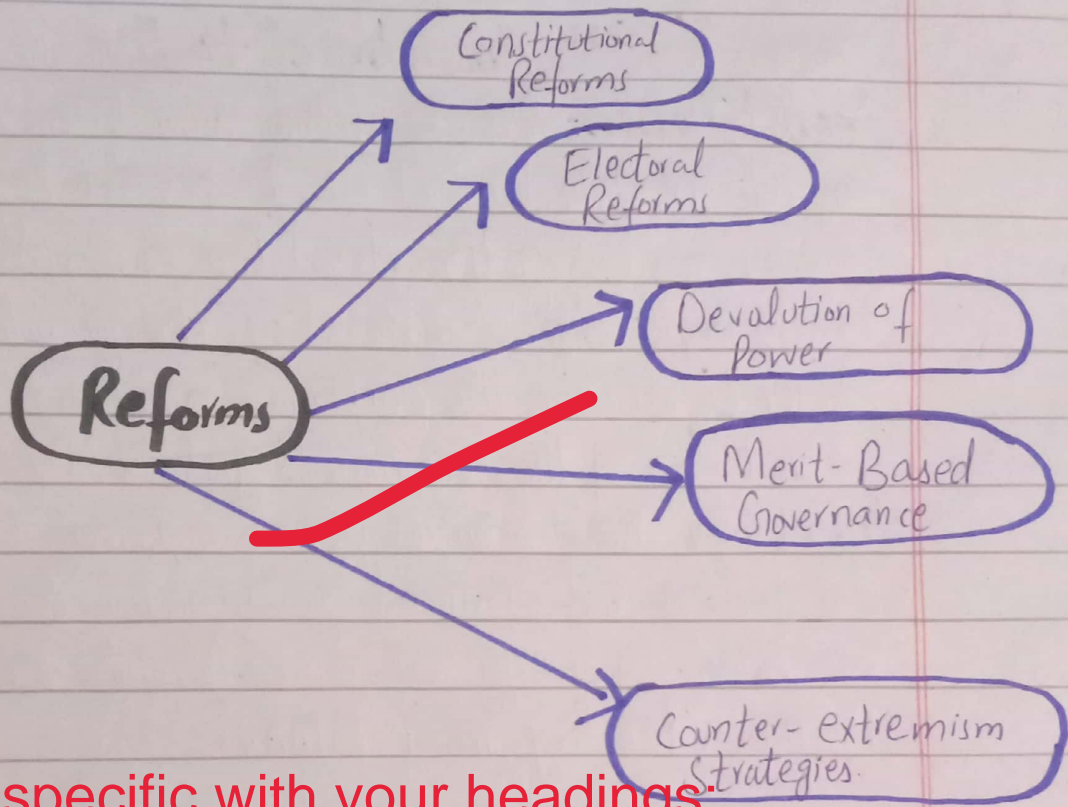 Constitutional
Reforms
Electoral
Reforms
Devalution of
Power
Reforms
Merit-Based
Governance
Counter-extremism
Strategies.
specific with your headings: